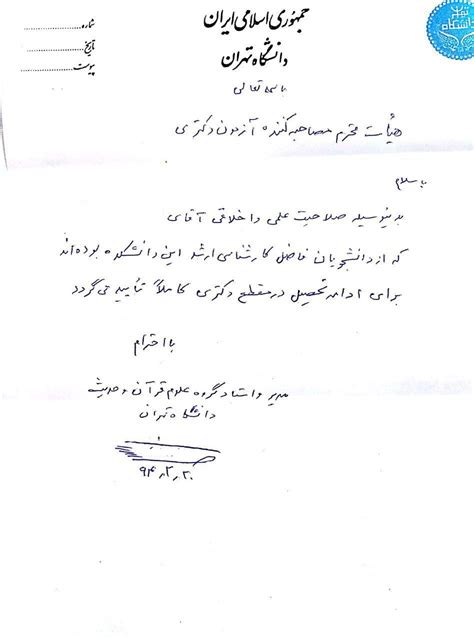 جمهوری اسلامی ایران
دانشگاه تهران
شماره:
تاریخ:
پیوست:
باسمه تعالی
هیأت محترم مصاحبه کننده آزمون دکتری
با سلام
بدینوسیله صلاحیت علمی و اخلاقی آقای
که از دانشجویان فاضل کارشناسی ارشد این دانشکده بوده‌اند
برای ادامه تحصیل در مقطع دکتری کاملاً تأیید می‌گردد
با احترام
مدیر و استاد گروه علوم قرآن و حدیث
دانشگاه تهران
۹۴,۲,۲۰